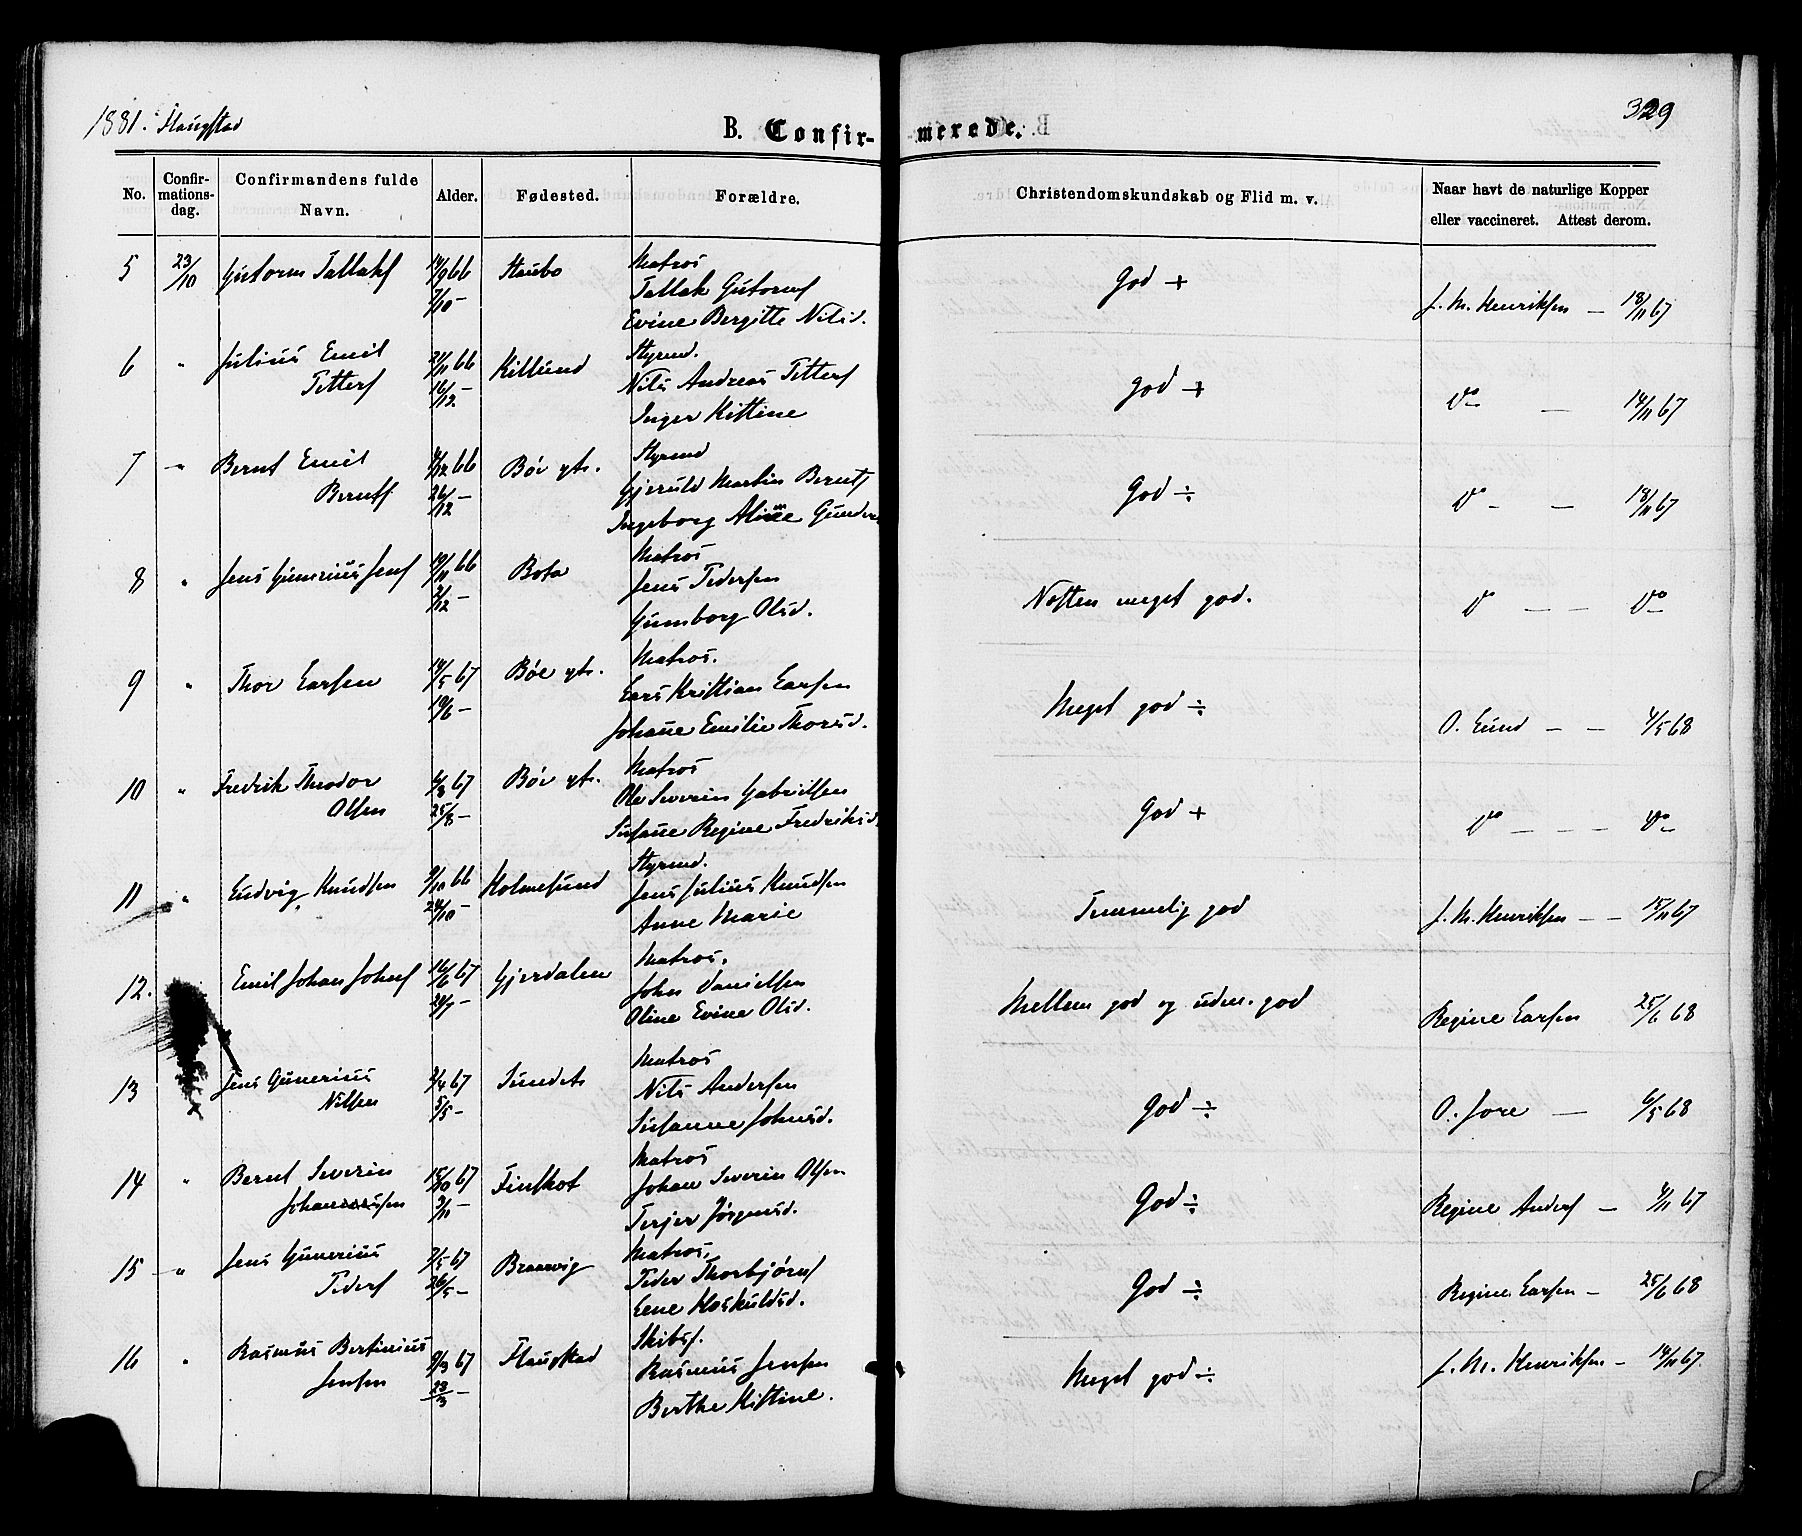 1881. Flaugstad
B. Confir-
merede.
329
No.
Confir-
mations-
dag.
Confirmandens fulde
Navn.
Alder.
Fødested.
Forældre.
Christendomskundskab og Flid m. v.
Naar havt de naturlige Kopper
eller vaccineret. Attest derom.
5 23/10 Gutorm Tallaks 14/9 66 Staubo Matros God +
7/10 – Tallak Gutorms J. M. Henriksen – 18/11 67
Evine Bergitte Nilsd.
6 " Julius Emil 21/11 66 Kilsund Styrmd. God +
Petters 16/12 – Nils Andreas Petters Do – 14/11 67
Inger Kistine
7 " Bernt Emil 4/12 66 Bøe ytr. Styrmd God ÷
Bernts 26/12 – Gjeruld Martin Bernts Do – – 18/11 67
Ingeborg Aline Gunders
8 " Jens Gunerius Jens 19/11 66 Bota Matros Næsten meget god.
2/12 – Jens Pedersen Do – – Do
Gunborg Olsd.
9 " Thor Larsen 14/5 67 Bøe ytr. Matros. Meget god ÷
19/6 – Lars Kristian Larsen O. Lund – – 4/5 68
Johanne Emilie Thorsd.
10 " Fredrik Theodor 4/8 67 Bøe ytr. Matros God +
Olsen 25/8 – Ole Severin Gabrielsen Do – – – Do
Susanne Regine Fredriksd.
11 " Ludvig Knudsen 9/10 66 Holmesund Styrmd. Temmelig god
24/10 – Jens Julius Knudsen J. M. Henriksen – – 15/11 67
Anne Marie
12. Emil Johan Johns 16/6 67 Gjerdalen Matros. Mellem god og udm. god
28/7 – John Danielsen Regine Larsen 25/6 68
Oline Evine Olsd.
13 Jens Gunerius 2/4 67 Sundet Matros God ÷
Nilsen 5/5 – Nils Andersen O. Jore – 6/5 68
Susanne Johnsd.
14 " Bernt Severin 15/10 67 Matros God ÷
Johannessen 3/11 – Johan Severin Olsen Regine Anders – 4/11 67
Terjer Jørgensd.
15 " Jens Gunerius 7/5 67 Braarvig Matros. God ÷
Peders 26/5 – Peder Thorbjørns Regine Larsen – 25/6 68
Lene Hoskuldsd.
16 " Rasmus Bertinius 9/3 67 Flaugstad Skibsf. Meget god ÷
Jensen 23/3 – Rasmus Jensen J. M. Henriksen – 14/11 67.
Berthe Kistine.